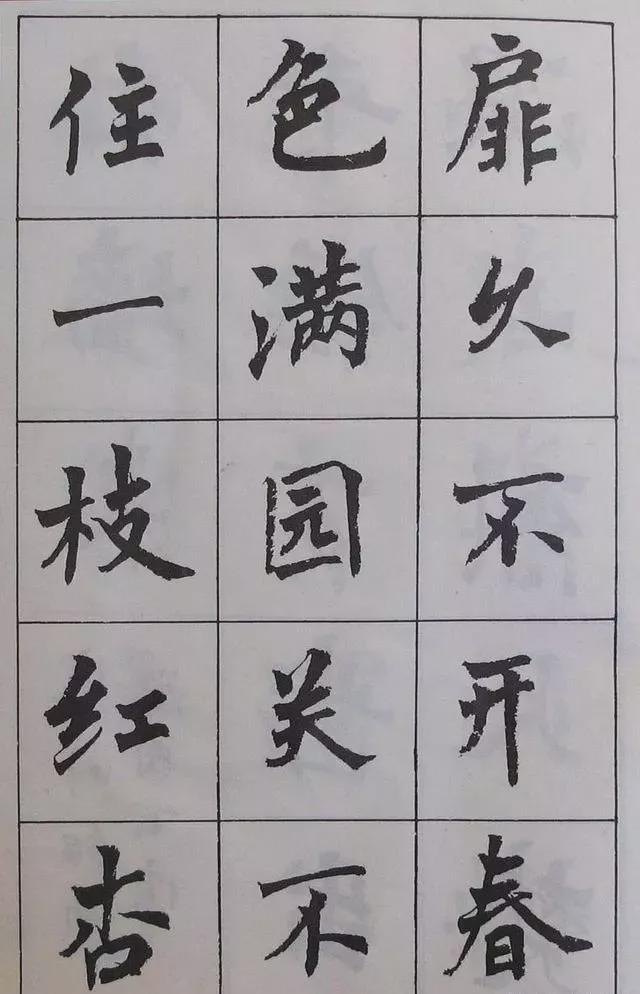 扉久不开春
色满园关不
住一枝红杏